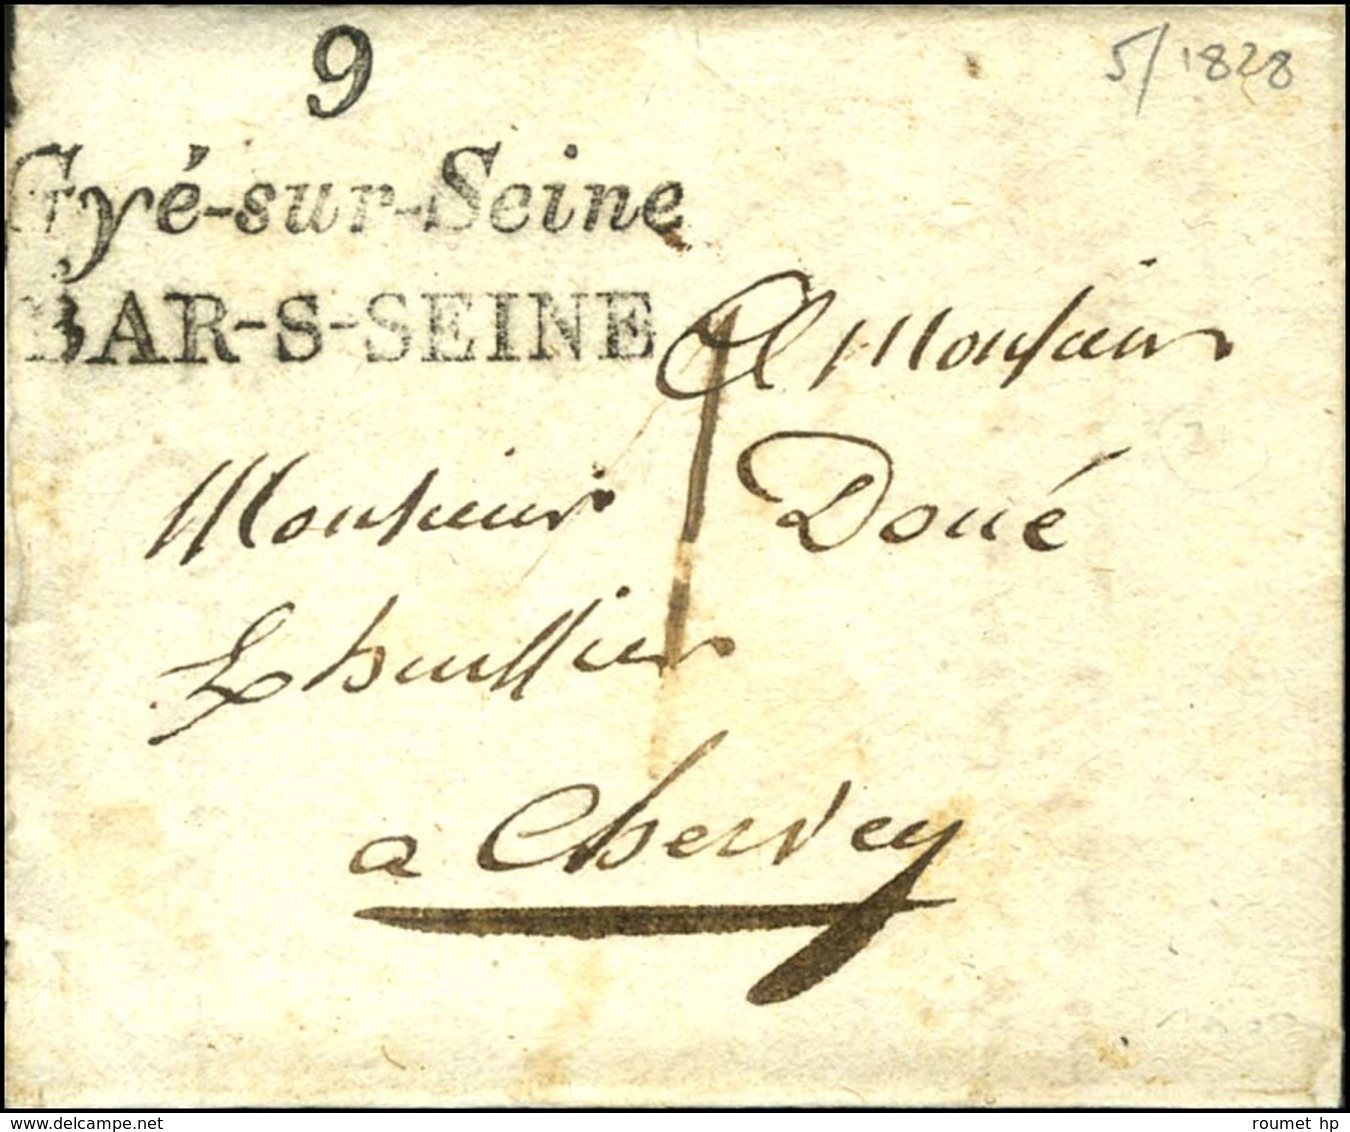 9
5/1828
Gyé-sur-Seine
BAR-S-SEINE
A Monsieur
Monsieur Doué
Lhuillier
1
a Chervey
delcampe.net
roumet hp